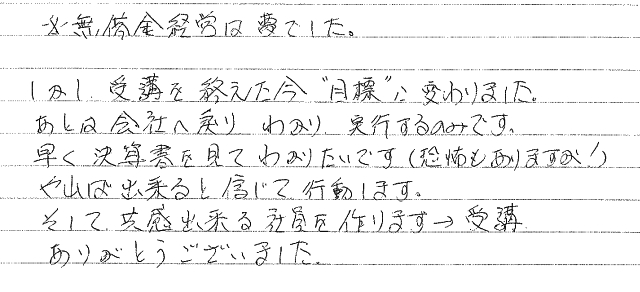 ☆無借金経営は夢でした。
しかし、受講を終えた今“目標”に変わりました。
あとは会社へ戻り わかり 実行するのみです。
早く決算書を見てわかりたいです(恐怖もありますが!)
やれば出来ると信じて行動します。
そして共感出来る社員を作ります→受講
ありがとうございました。